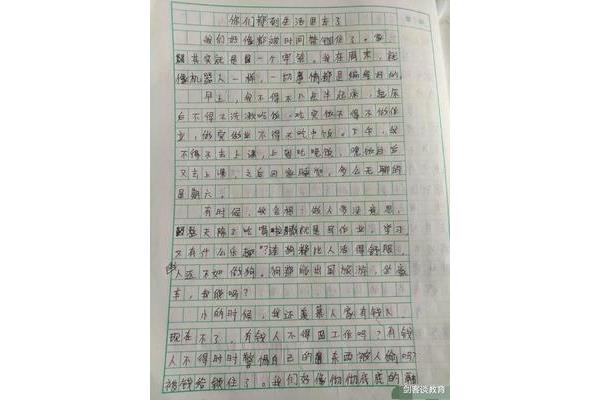 你们都到生活里去了
我们好像都被时间
其实就是一个牢笼。我在周末，就
像机器人一样，一切事情都是编辑好的。
早上，我不得不八点半起床，起床
后不得不洗漱吃饭，吃完饭不得不做作
业，做完作业不得不吃中饭。下午，我
不得不去上课，上到吃晚饭，晚饭
又去上课，之后回家睡觉，多么无聊的
星期六。
有时候，我会想：做人多没意思，
整天除了吃喝就是写作业，学习
又有什么乐趣？连狗都比人活得舒服，
人还不如做狗。狗都能出国旅游，坐豪
车，我能吗？
小的时候，我还羡慕人家有钱人，
现在不了。有钱人不得因工作吗？有钱
人不得时时警惕自己的东西被人偷吗？
被钱给锁住了。我们好像彻彻底底的
剑客谈教育